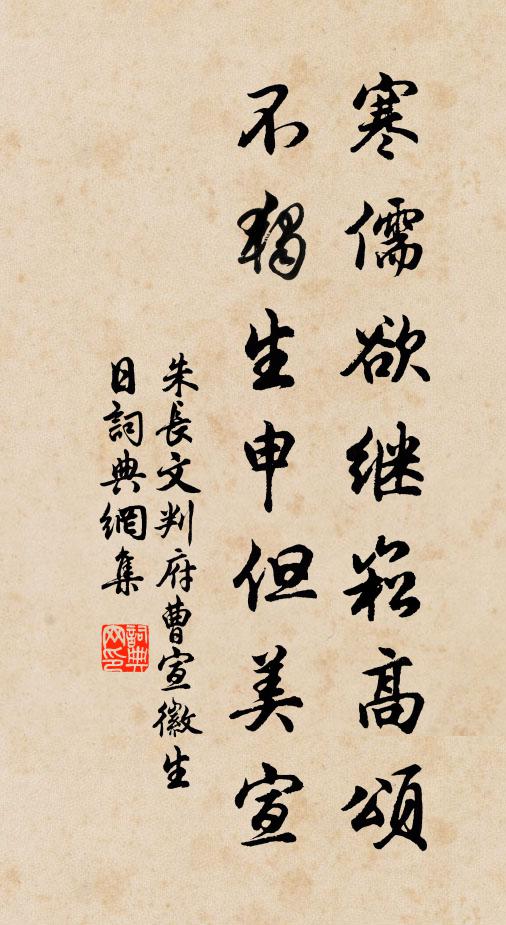 寒儒欲继崧高頌
不独生申但美宣
朱長文判府曹宣徽生
日詞典網集
詞典
网印